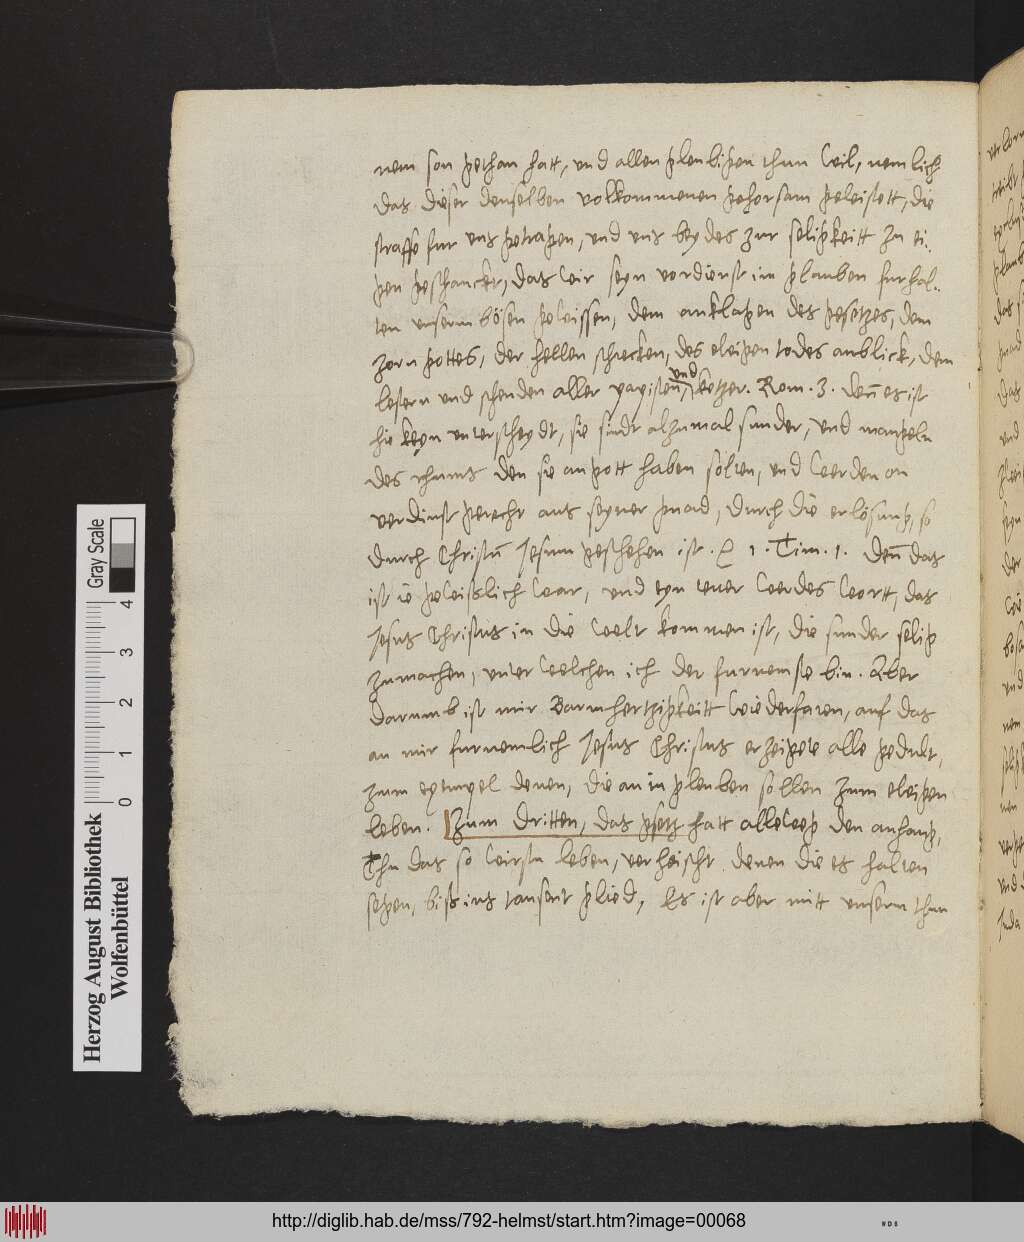 nem son gethan hatt, und allen gleubigen thun wil, nemlich
das dieser denselben volkommenen gehorsam geleistett, die
straffe fur uns getragen, und uns beydes zur seligkeitt zu ei.
gen geschanckt, das wir seyn verdienst im glauben furhal..
ten unserm bösen gewissen, dem anklagen des gesetzes, dem
zorn gottes, der hellen schrecken, des ewigen todes anblick, dem
lestern und schenden aller papisten, und ketzer. Rom. 3. den̄ es ist
hie keyn unterscheydt, sie sindt alzumal sunder, und mangeln
des rhums den sie an gott haben solten, und werden on
verdinst gerecht aus seyner gnad, durch die erlösung, so
durch Christū Jesum geschehen ist. 1. Tim. 1. den̄ das
ist ie gewislich war, und eyn teuer werdes wortt, das
Jesus Christus in die welt kommen ist, die sunder selig
zumachen, unter welchen ich der furnemste bin. Aber
darumb ist mir Barmhertzigkeitt wiederfaren, auf das
an mir furnemlich Jesus Christus erzeigete alle gedult,
zum exempel denen, die an in gleuben sollen zum ewigen
leben. Zum dritten, das gsetz hatt alleweg den anhang,
Thu das so wirstu leben, verheischt denen die es halten
segen, bis ins tausent glied, Es ist aber mitt unserm thun
Herzog August Bibliothek
Wolfenbüttel
0 1 2 3 4
Gray Scale
http://diglib.hab.de/mss/792-helmst/start.htm?image=00068